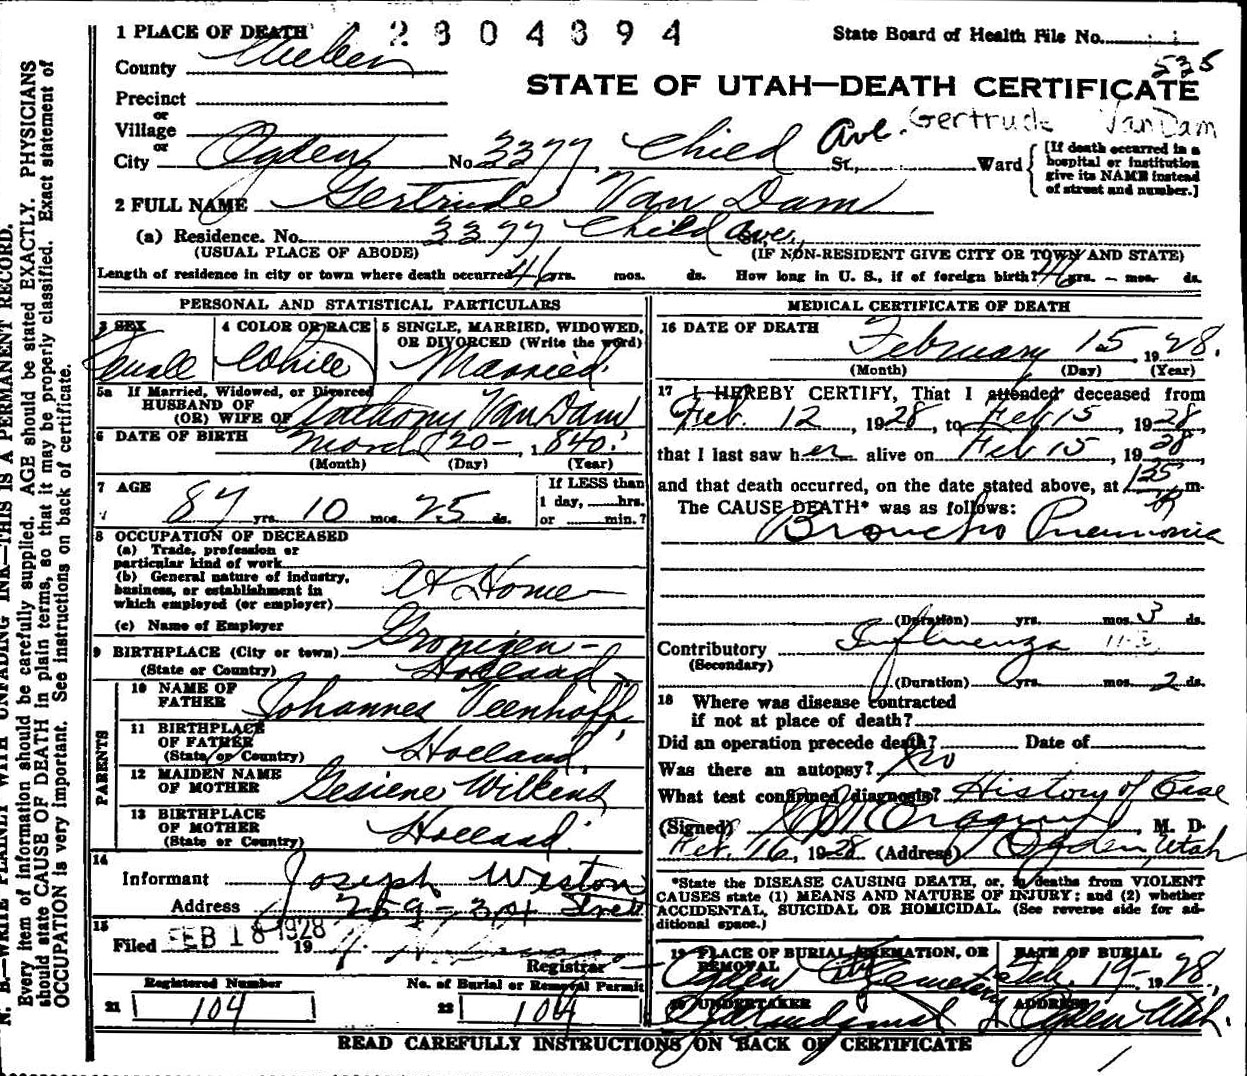 2304394
1 PLACE OF DEATH
State Board of Health File No.
County
535
STATE OF UTAH—DEATH CERTIFICATE
Precinct
or
Village
or
Gertrude VanDam
City Ogden No. 3377 Child Ave. St., Ward
[If death occurred in a hospital or institution give its NAME instead of street and number.]
2 FULL NAME Gertrude Van Dam
(a) Residence. No. 3377 Child Ave.
(USUAL PLACE OF ABODE) (IF NON-RESIDENT GIVE CITY OR TOWN AND STATE)
Length of residence in city or town where death occurred 46 yrs. mos. ds. How long in U. S., if of foreign birth? 46 yrs. — mos. ds.
PERSONAL AND STATISTICAL PARTICULARS
3 SEX
Female
4 COLOR OR RACE
White
5 SINGLE, MARRIED, WIDOWED,
OR DIVORCED (Write the word)
Married
5a If Married, Widowed, or Divorced
HUSBAND OF
(OR) WIFE OF Anthony Van Dam
6 DATE OF BIRTH March 20 — 1840.
(Month) (Day) (Year)
7 AGE
87 yrs. 10 mos. 25 ds.
If LESS than
1 day, hrs.
or min.?
8 OCCUPATION OF DECEASED
(a) Trade, profession or
particular kind of work
(b) General nature of industry,
business, or establishment in
which employed (or employer)
At Home
(c) Name of Employer
9 BIRTHPLACE (City or town) Gronigen —
(State or Country) Holland
PARENTS
10 NAME OF
FATHER Johannes Veenhoff
11 BIRTHPLACE
OF FATHER
(State or Country) Holland
12 MAIDEN NAME
OF MOTHER Gesiene Wilkens
13 BIRTHPLACE
OF MOTHER
(State or Country) Holland
14
Informant Joseph Weston
Address 259 — 30th Street
15
Filed FEB 18 1928 19
Registrar
Registered Number
21 104
No. of Burial or Removal Permit
22 104
MEDICAL CERTIFICATE OF DEATH
16 DATE OF DEATH
February 15, 1928.
(Month) (Day) (Year)
17 I HEREBY CERTIFY, That I attended deceased from
Feb. 12, 1928, to Feb 15 1928,
that I last saw her alive on Feb 15, 1928
and that death occurred, on the date stated above, at 135 P m.
The CAUSE DEATH* was as follows:
Broncho Pneumonia
(Duration) yrs. mos. 3 ds.
Contributory Influenza
(Secondary)
(Duration) yrs. mos. 2 ds.
18 Where was disease contracted
if not at place of death?
Did an operation precede death? Date of
Was there an autopsy? No
What test confirmed diagnosis? History of Case
(Signed) M. D.
Feb. 16, 1928 (Address) Ogden, Utah
*State the DISEASE CAUSING DEATH, or, in deaths from VIOLENT
CAUSES state (1) MEANS AND NATURE OF INJURY; and (2) whether
ACCIDENTAL, SUICIDAL OR HOMICIDAL. (See reverse side for ad-
ditional space.)
19 PLACE OF BURIAL, CREMATION, OR
REMOVAL
Ogden City Cemetery
DATE OF BURIAL
Feb. 19 — 1928
20 UNDERTAKER
ADDRESS
Ogden Utah.
READ CAREFULLY INSTRUCTIONS ON BACK OF CERTIFICATE
N. B.—WRITE PLAINLY WITH UNFADING INK—THIS IS A PERMANENT RECORD.
Every item of information should be carefully supplied. AGE should be stated EXACTLY. PHYSICIANS
should state CAUSE OF DEATH in plain terms, so that it may be properly classified. Exact statement of
OCCUPATION is very important. See instructions on back of certificate.